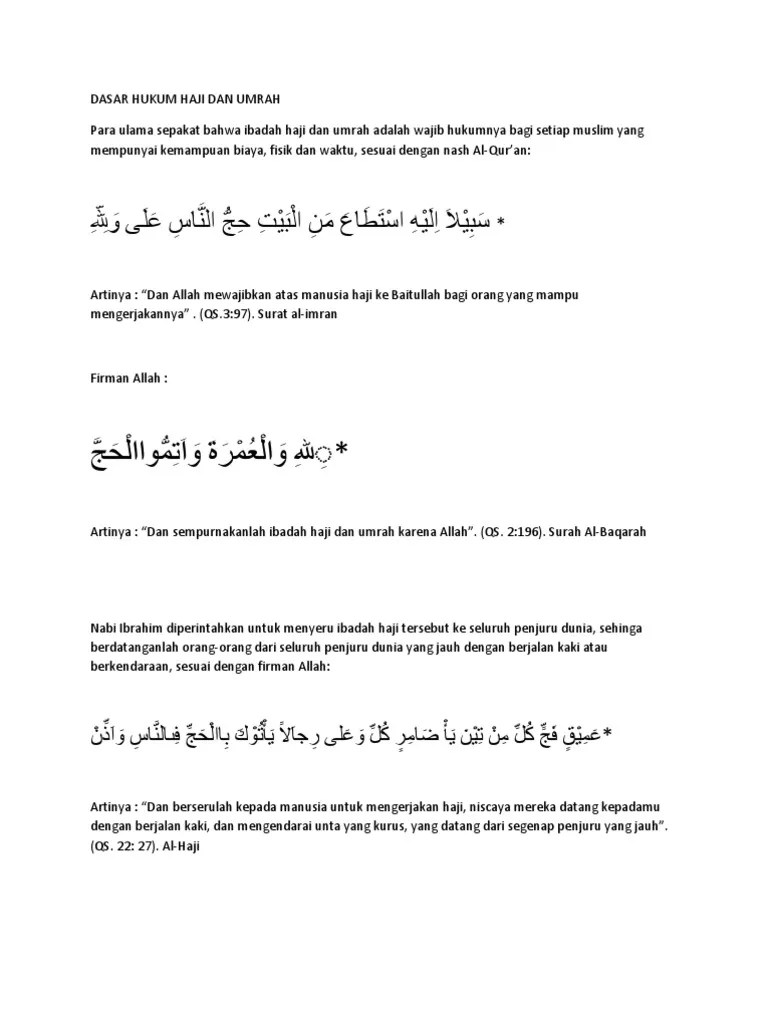 DASAR HUKUM HAJI DAN UMRAH
Para ulama sepakat bahwa ibadah haji dan umrah adalah wajib hukumnya bagi setiap muslim yang
mempunyai kemampuan biaya, fisik dan waktu, sesuai dengan nash Al-Qur’an:
* سَبِيْلاَ اِلَيْهِ اسْتَطَاعَ مَنِ الْبَيْتِ حِجُّ النَّاسِ عَلَى وَلِلّهِ
Artinya : “Dan Allah mewajibkan atas manusia haji ke Baitullah bagi orang yang mampu
mengerjakannya” . (QS.3:97). Surat al-imran
Firman Allah :
*ِللهِ وَالْعُمْرَة وَاَتِمُّواالْحَجَّ
Artinya : “Dan sempurnakanlah ibadah haji dan umrah karena Allah”. (QS. 2:196). Surah Al-Baqarah
Nabi Ibrahim diperintahkan untuk menyeru ibadah haji tersebut ke seluruh penjuru dunia, sehinga
berdatanganlah orang-orang dari seluruh penjuru dunia yang jauh dengan berjalan kaki atau
berkendaraan, sesuai dengan firman Allah:
*عَمِيْقٍ فَجٍّ كُلِّ مِنْ تِيْن يَأْ ضَامِرٍ كُلِّ وَعَلى رِجاَلاً يَأْتُوْكَ بِاالْحَجِّ فِىالنَّاسِ وَاَذِّنْ
Artinya : “Dan berserulah kepada manusia untuk mengerjakan haji, niscaya mereka datang kepadamu
dengan berjalan kaki, dan mengendarai unta yang kurus, yang datang dari segenap penjuru yang jauh”.
(QS. 22: 27). Al-Haji